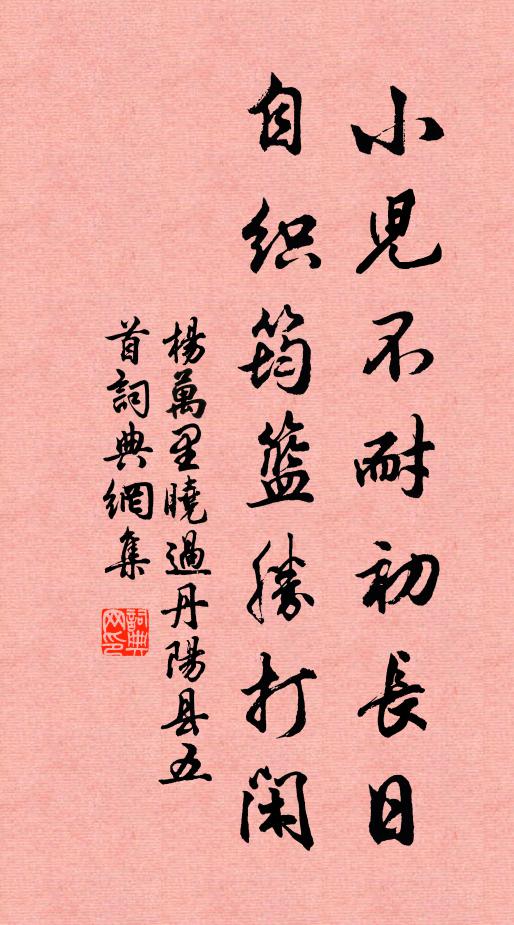 小児不耐初長日
自织筠籃勝打闲
楊萬里曉過丹陽县五
首詞典網集
詞典
网印